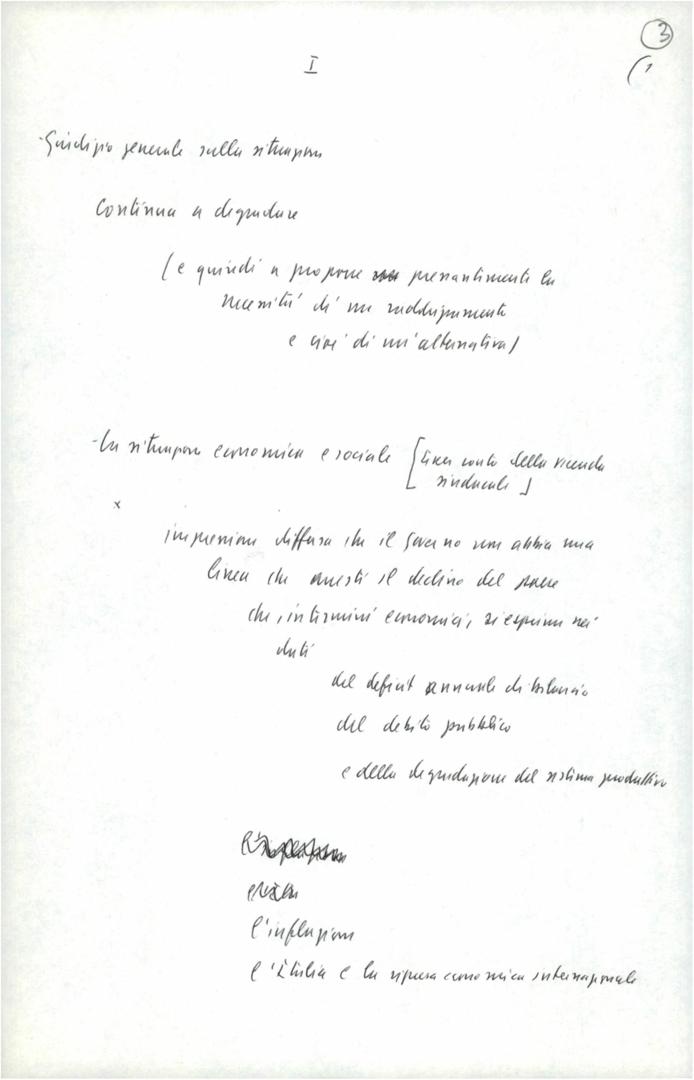 3
(1
I
-Giudizio generale sulla situazione
Continua a degradare
(e quindi a proporre pressantemente la
necessità di un raddrizzamento
e cioè di un'alternativa)
-la situazione economica e sociale [tener conto della vicenda
sindacale]
x
impressione diffusa che il governo non abbia una
linea che arresti il declino del paese
che, in termini economici, si esprime nei
dati
del deficit annuale di bilancio
del debito pubblico
e della degradazione del sistema produttivo
l'inflazione
l'Italia e la ripresa economica internazionale